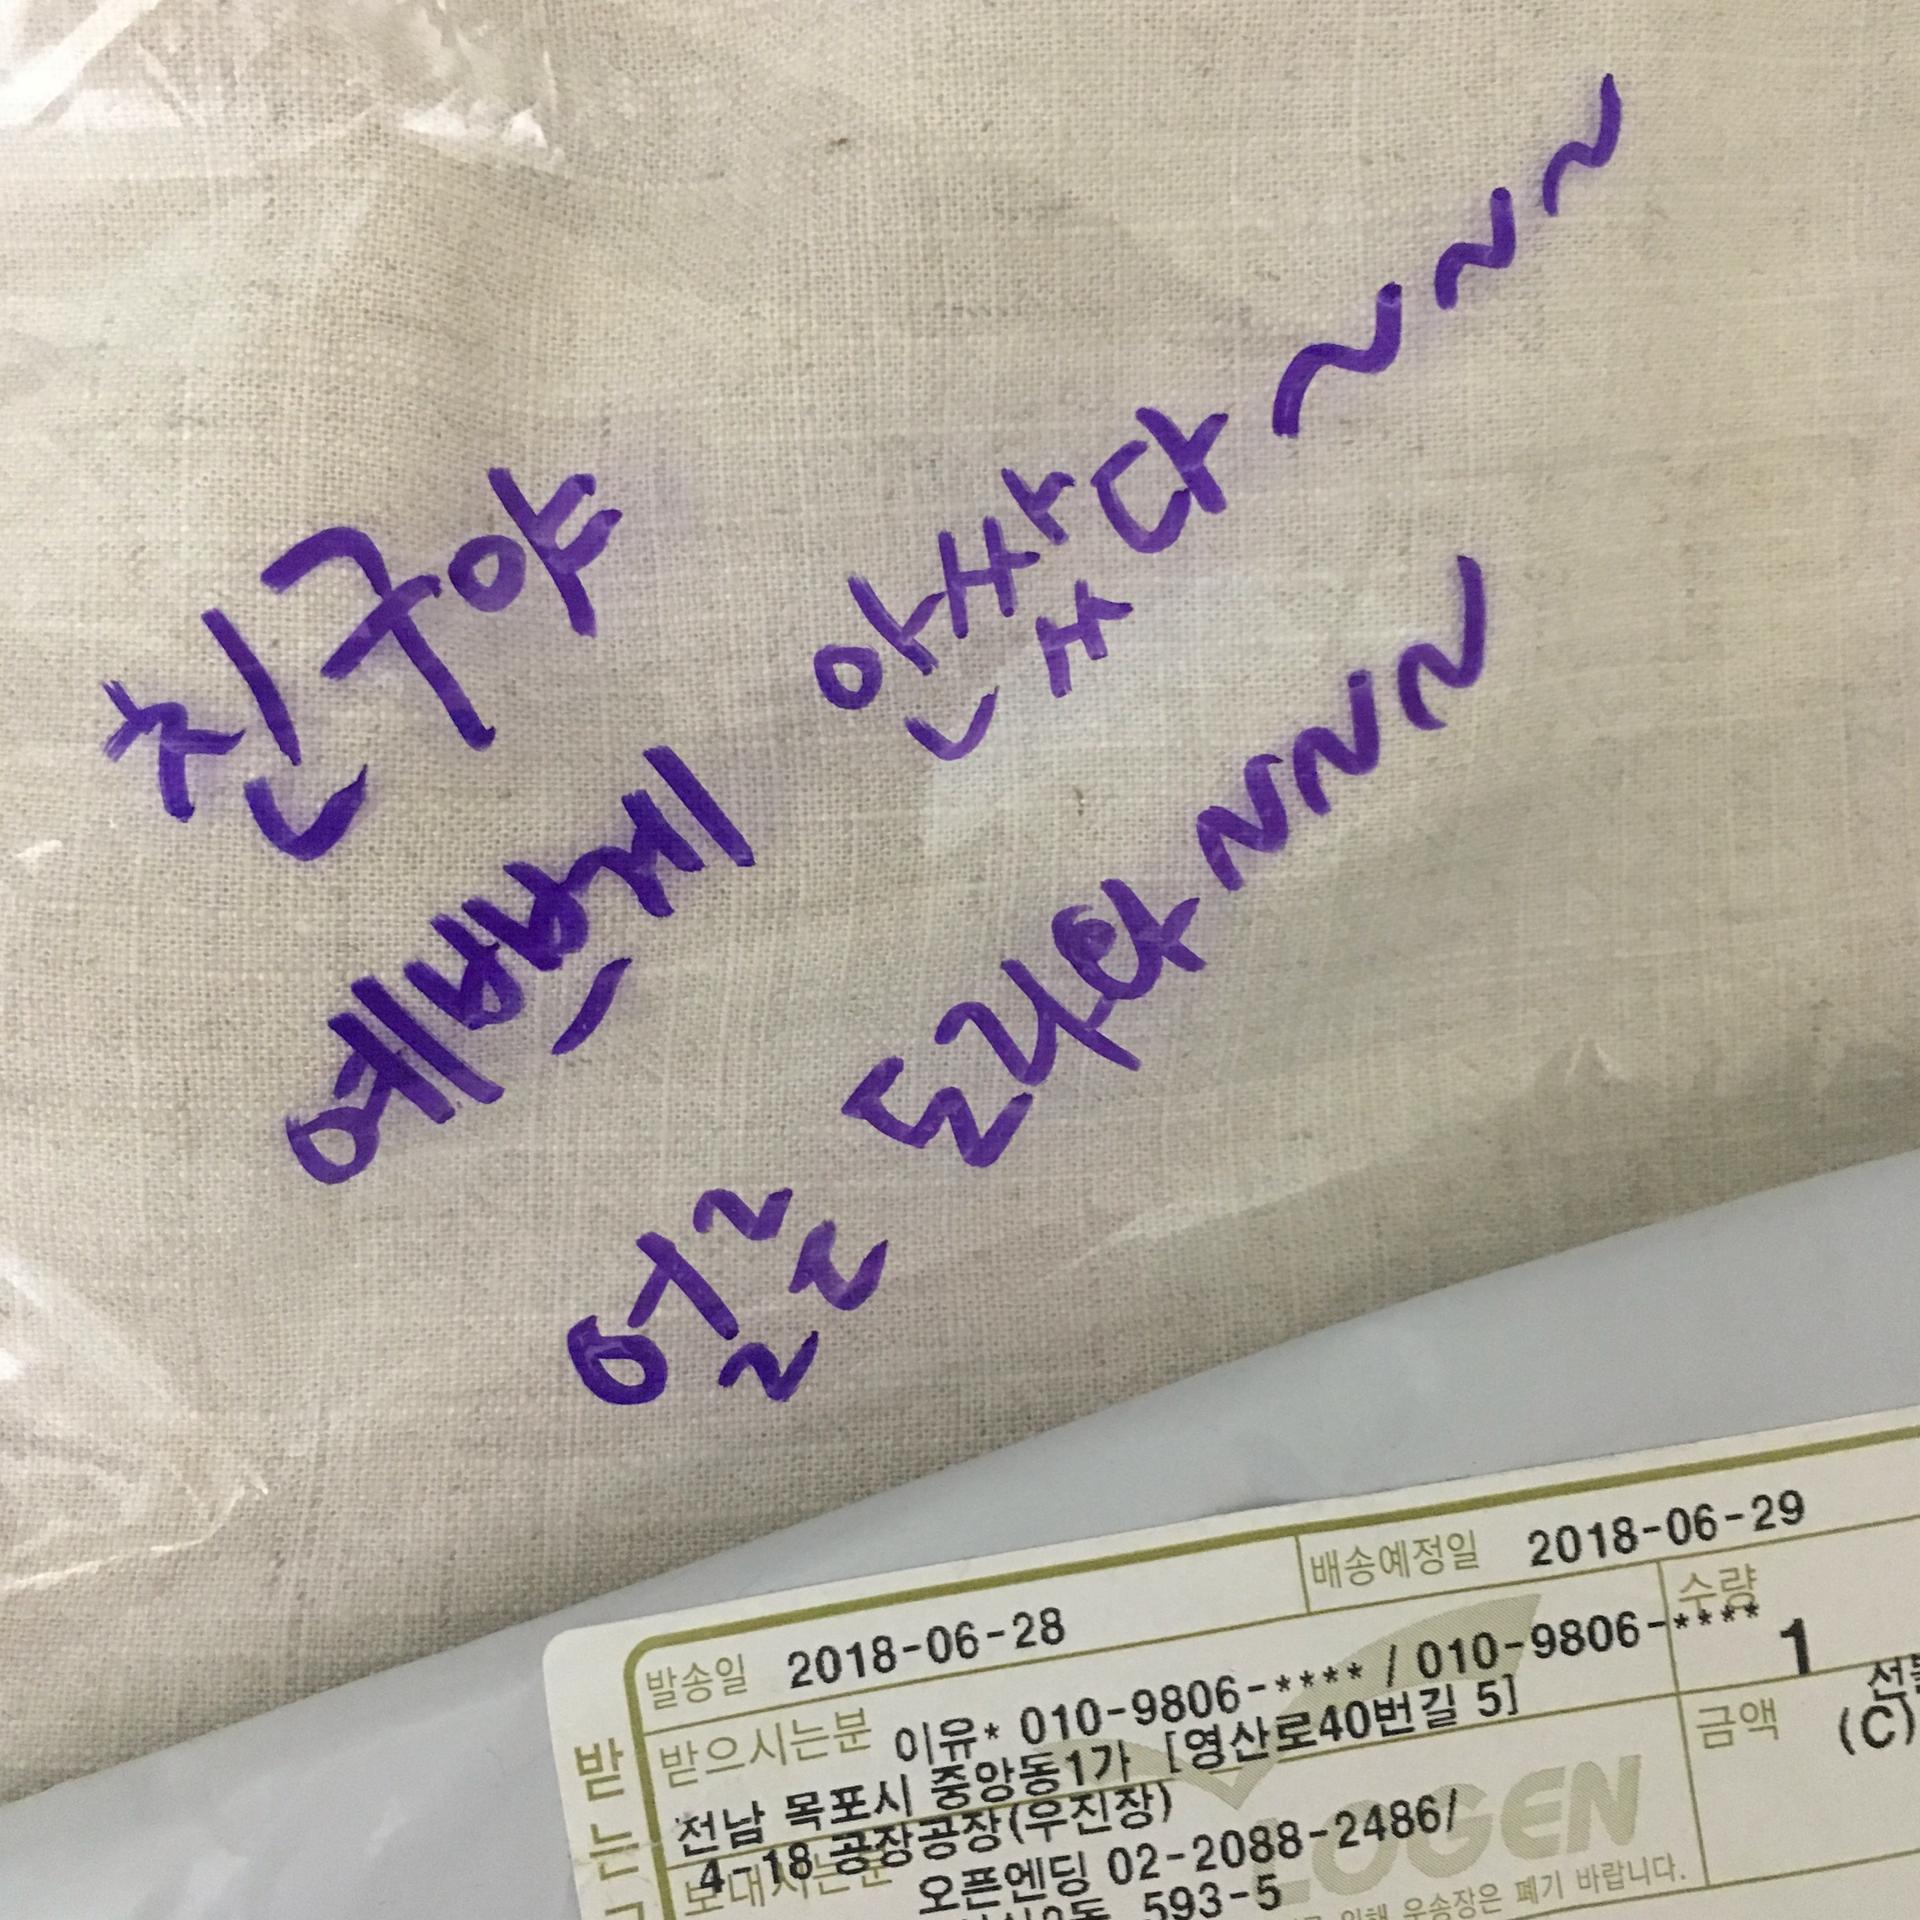 친구야
안쌌다~~~
예쁘게
얼른 도와~~~~
발송일 2018-06-28 배송예정일 2018-06-29
받으시는분 이유* 010-9806-**** / 010-9806-**** 수량 1
전남 목포시 중앙동1가 [영산로40번길 5] 금액 (C)
4-18 공장공장(우진장)
보내시는분 오픈엔딩 02-2088-2486/
593-5
LOGEN
우송장은 폐기 바랍니다.
받
는